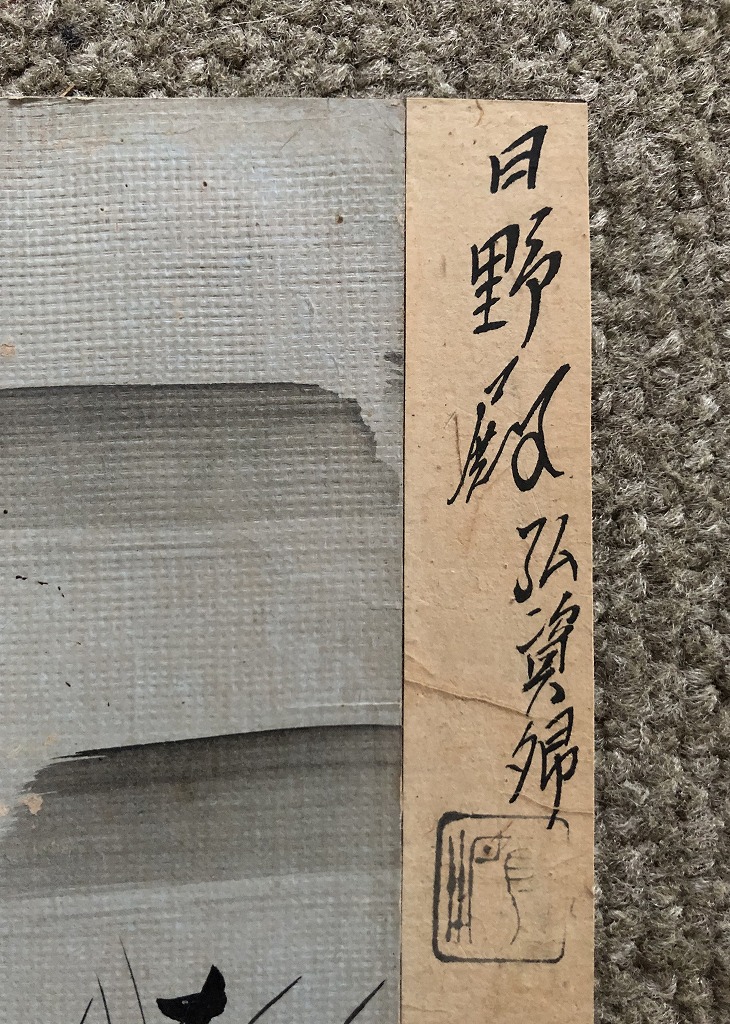 日野殿弘資卿